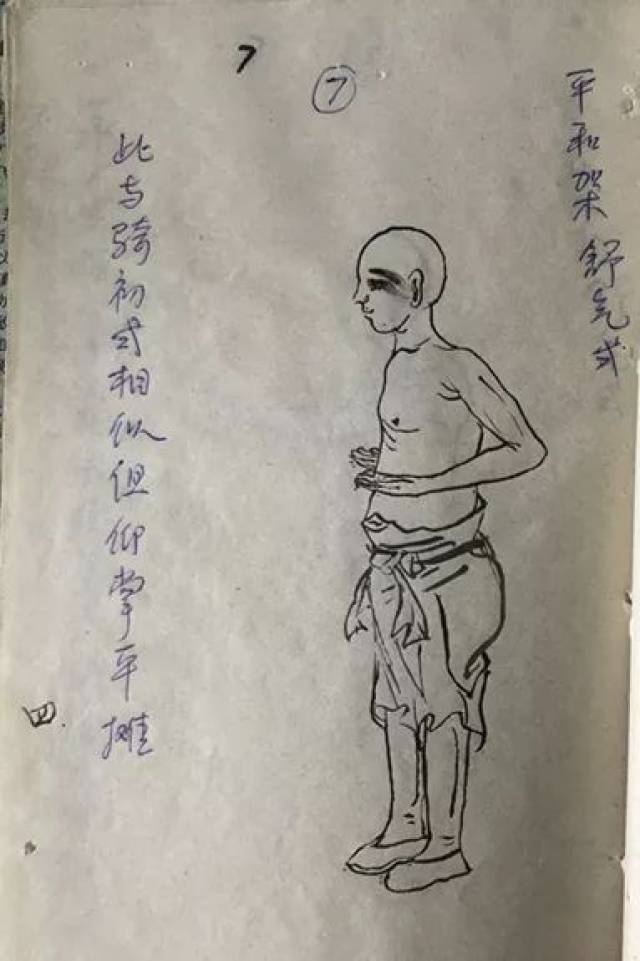 7
⑦
平和架 舒气式
此与骑初式相似但仰掌平摊
四.